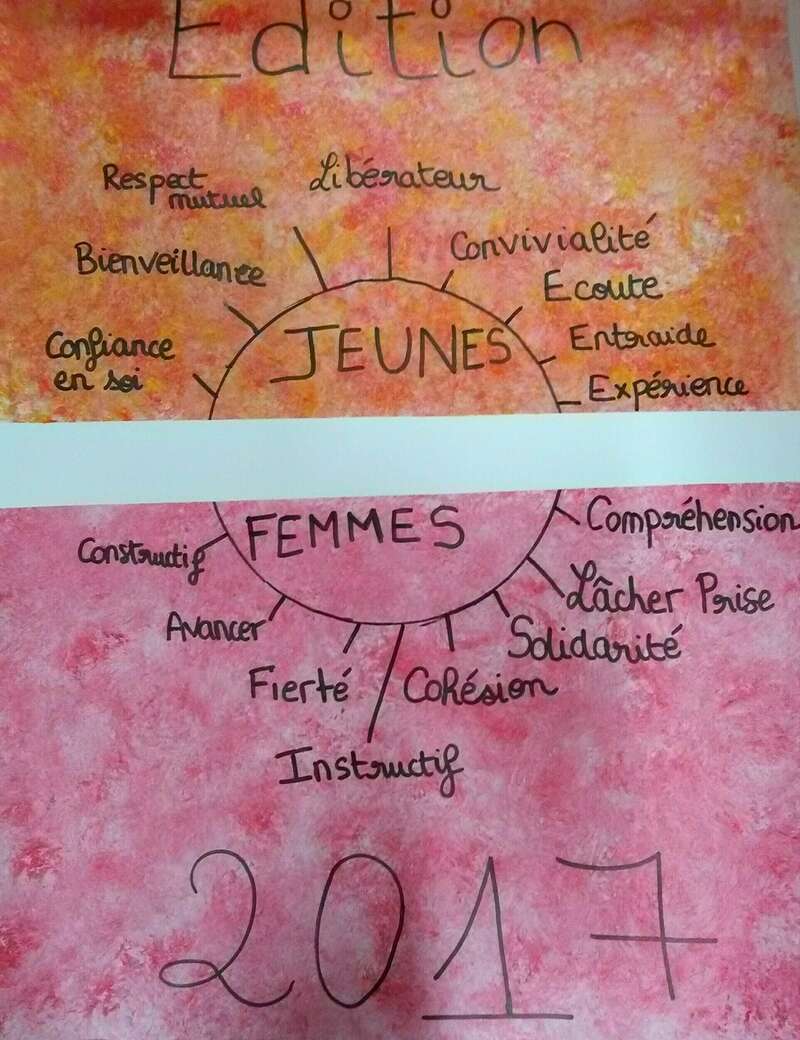 Edition
Respect
mutuel
Libérateur
Bienveillance
Convivialité
Ecoute
JEUNES
Entraide
Confiance
en soi
Expérience
FEMMES
Compréhension
Constructif
Lâcher Prise
Avancer
Solidarité
Fierté
Cohésion
Instructif
2017